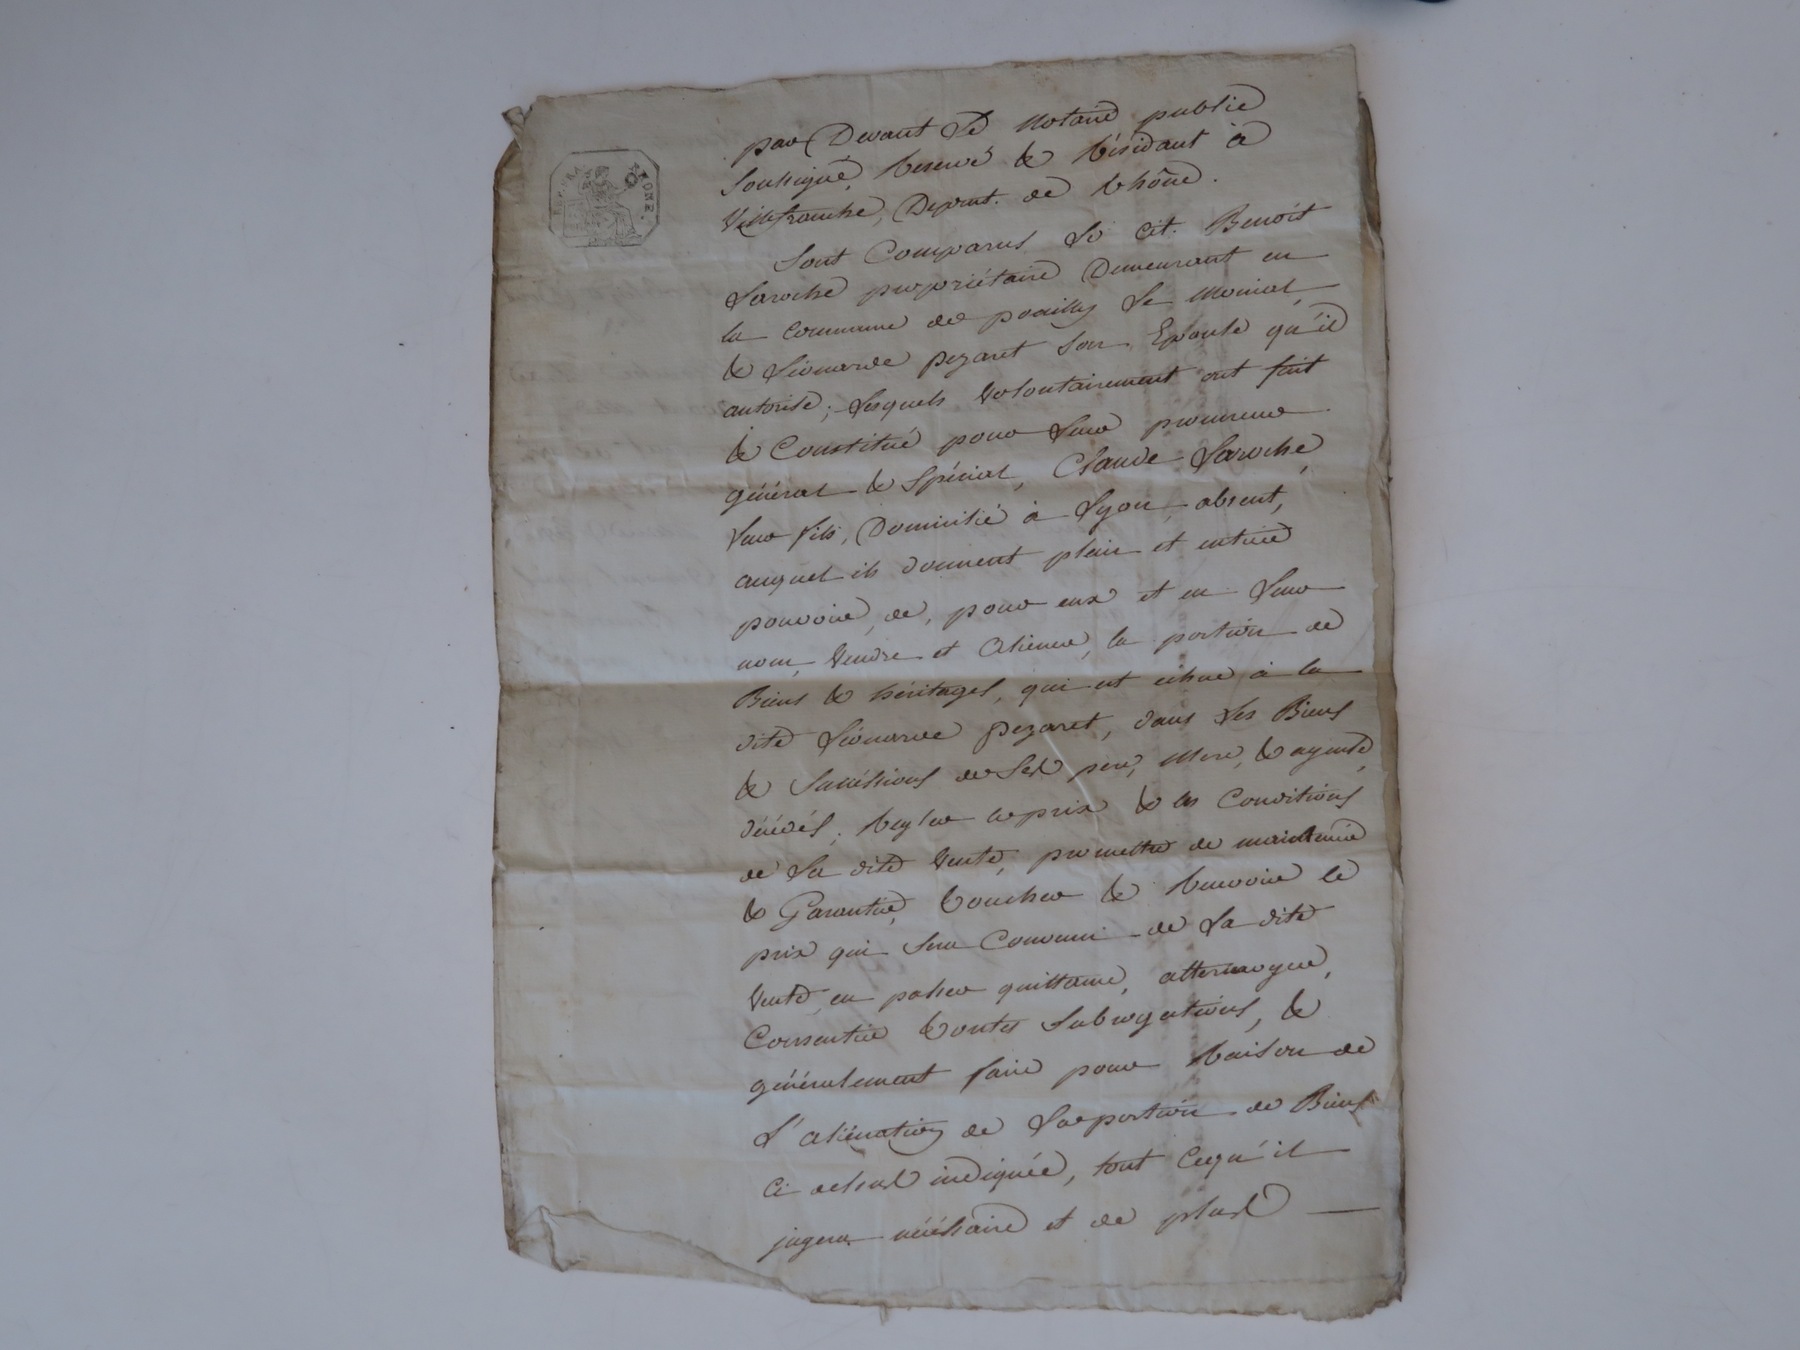 REP. FRA.
ONZ.
par Devant Le Notaire public
Soussigné, Reservé & Résidant à
Villefranche, Depmt. de Rhône.
Sont Comparus Le Cit. Benoit
Laroche propriétaire Demeurant en
la Commune de pouilly Le Monial
& Léonarde pezaret Son Epouse qu'il
autorise; Lesquels Volontairement ont fait
& Constitué pour Leur procureur
général & Spécial, Claude Laroche,
Leur fils, Domicilié à Lyon, absent,
auquel ils donnent plein et entier
pouvoir, de, pour eux et en Leur
nom, Vendre et Aliener, la portion de
Biens & héritages, qui est échue à la
dite Léonarde pezaret, dans Les Biens
& Successions de Ses pere, Mere, &
décédés, Regler le prix & les Conditions
de La dite Vente, promettre de maintenir
& Garantir, Toucher & Recevoir le
prix qui Sera Convenu de La dite
Vente, en passer quittance,
Consentir Toutes Subrogations, &
généralement faire pour Raison de
L'aliénation de La portion de Biens
Ci dessus indiquée, tout Cequ'il
jugera nécéssaire et de plus